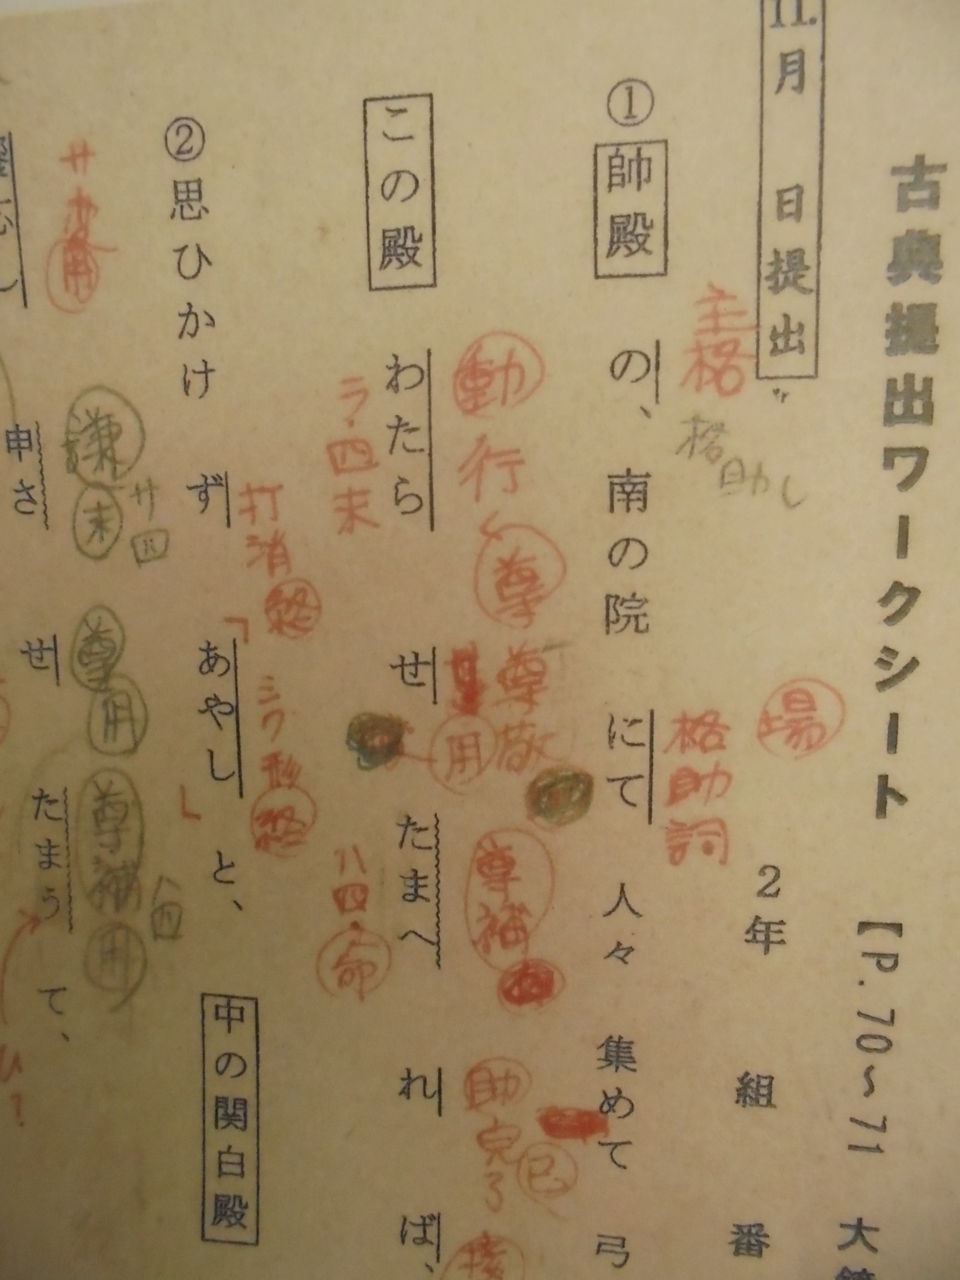 古典提出ワークシート 【P.70~71 大鏡
11.月 日提出 2年 組 番
場
主格 格助詞
格助し
①帥殿の、南の院にて人々集めて弓
動 行 尊 尊敬 用 尊補 助 完了 已 接
この殿わたらせたまへれば、
ラ・四未 ハ四・命
打消 終 シク形 終
②思ひかけず「あやし」と、中の関白殿
謙 未 サ四 尊 用 尊補 用 ハ四
サ変 用
申させたまうて、
ひ?